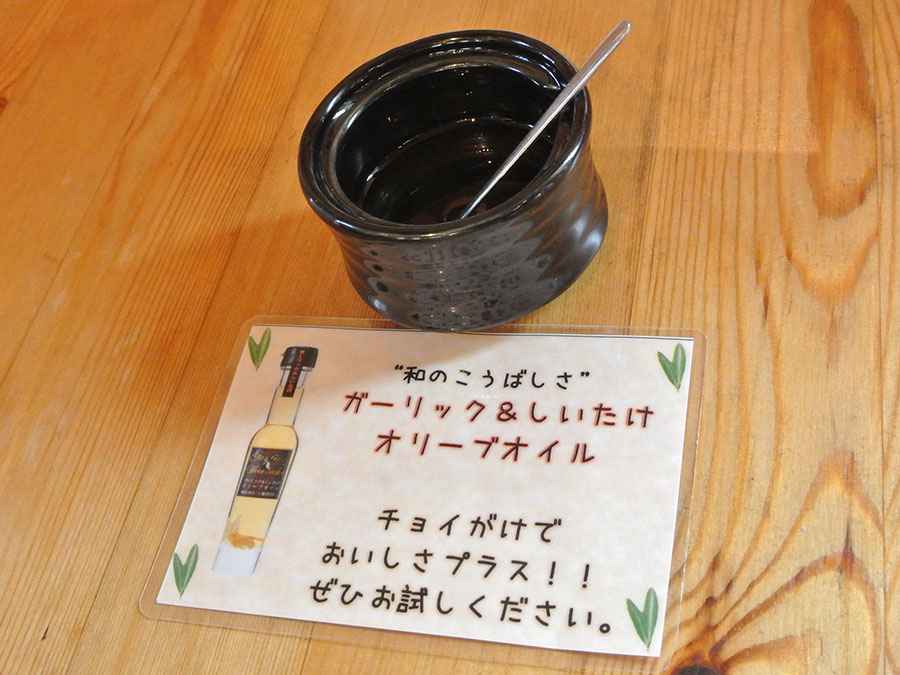 “和のこうばしさ”
ガーリック＆しいたけ
オリーブオイル
チョイがけで
おいしさプラス！！
ぜひお試しください。